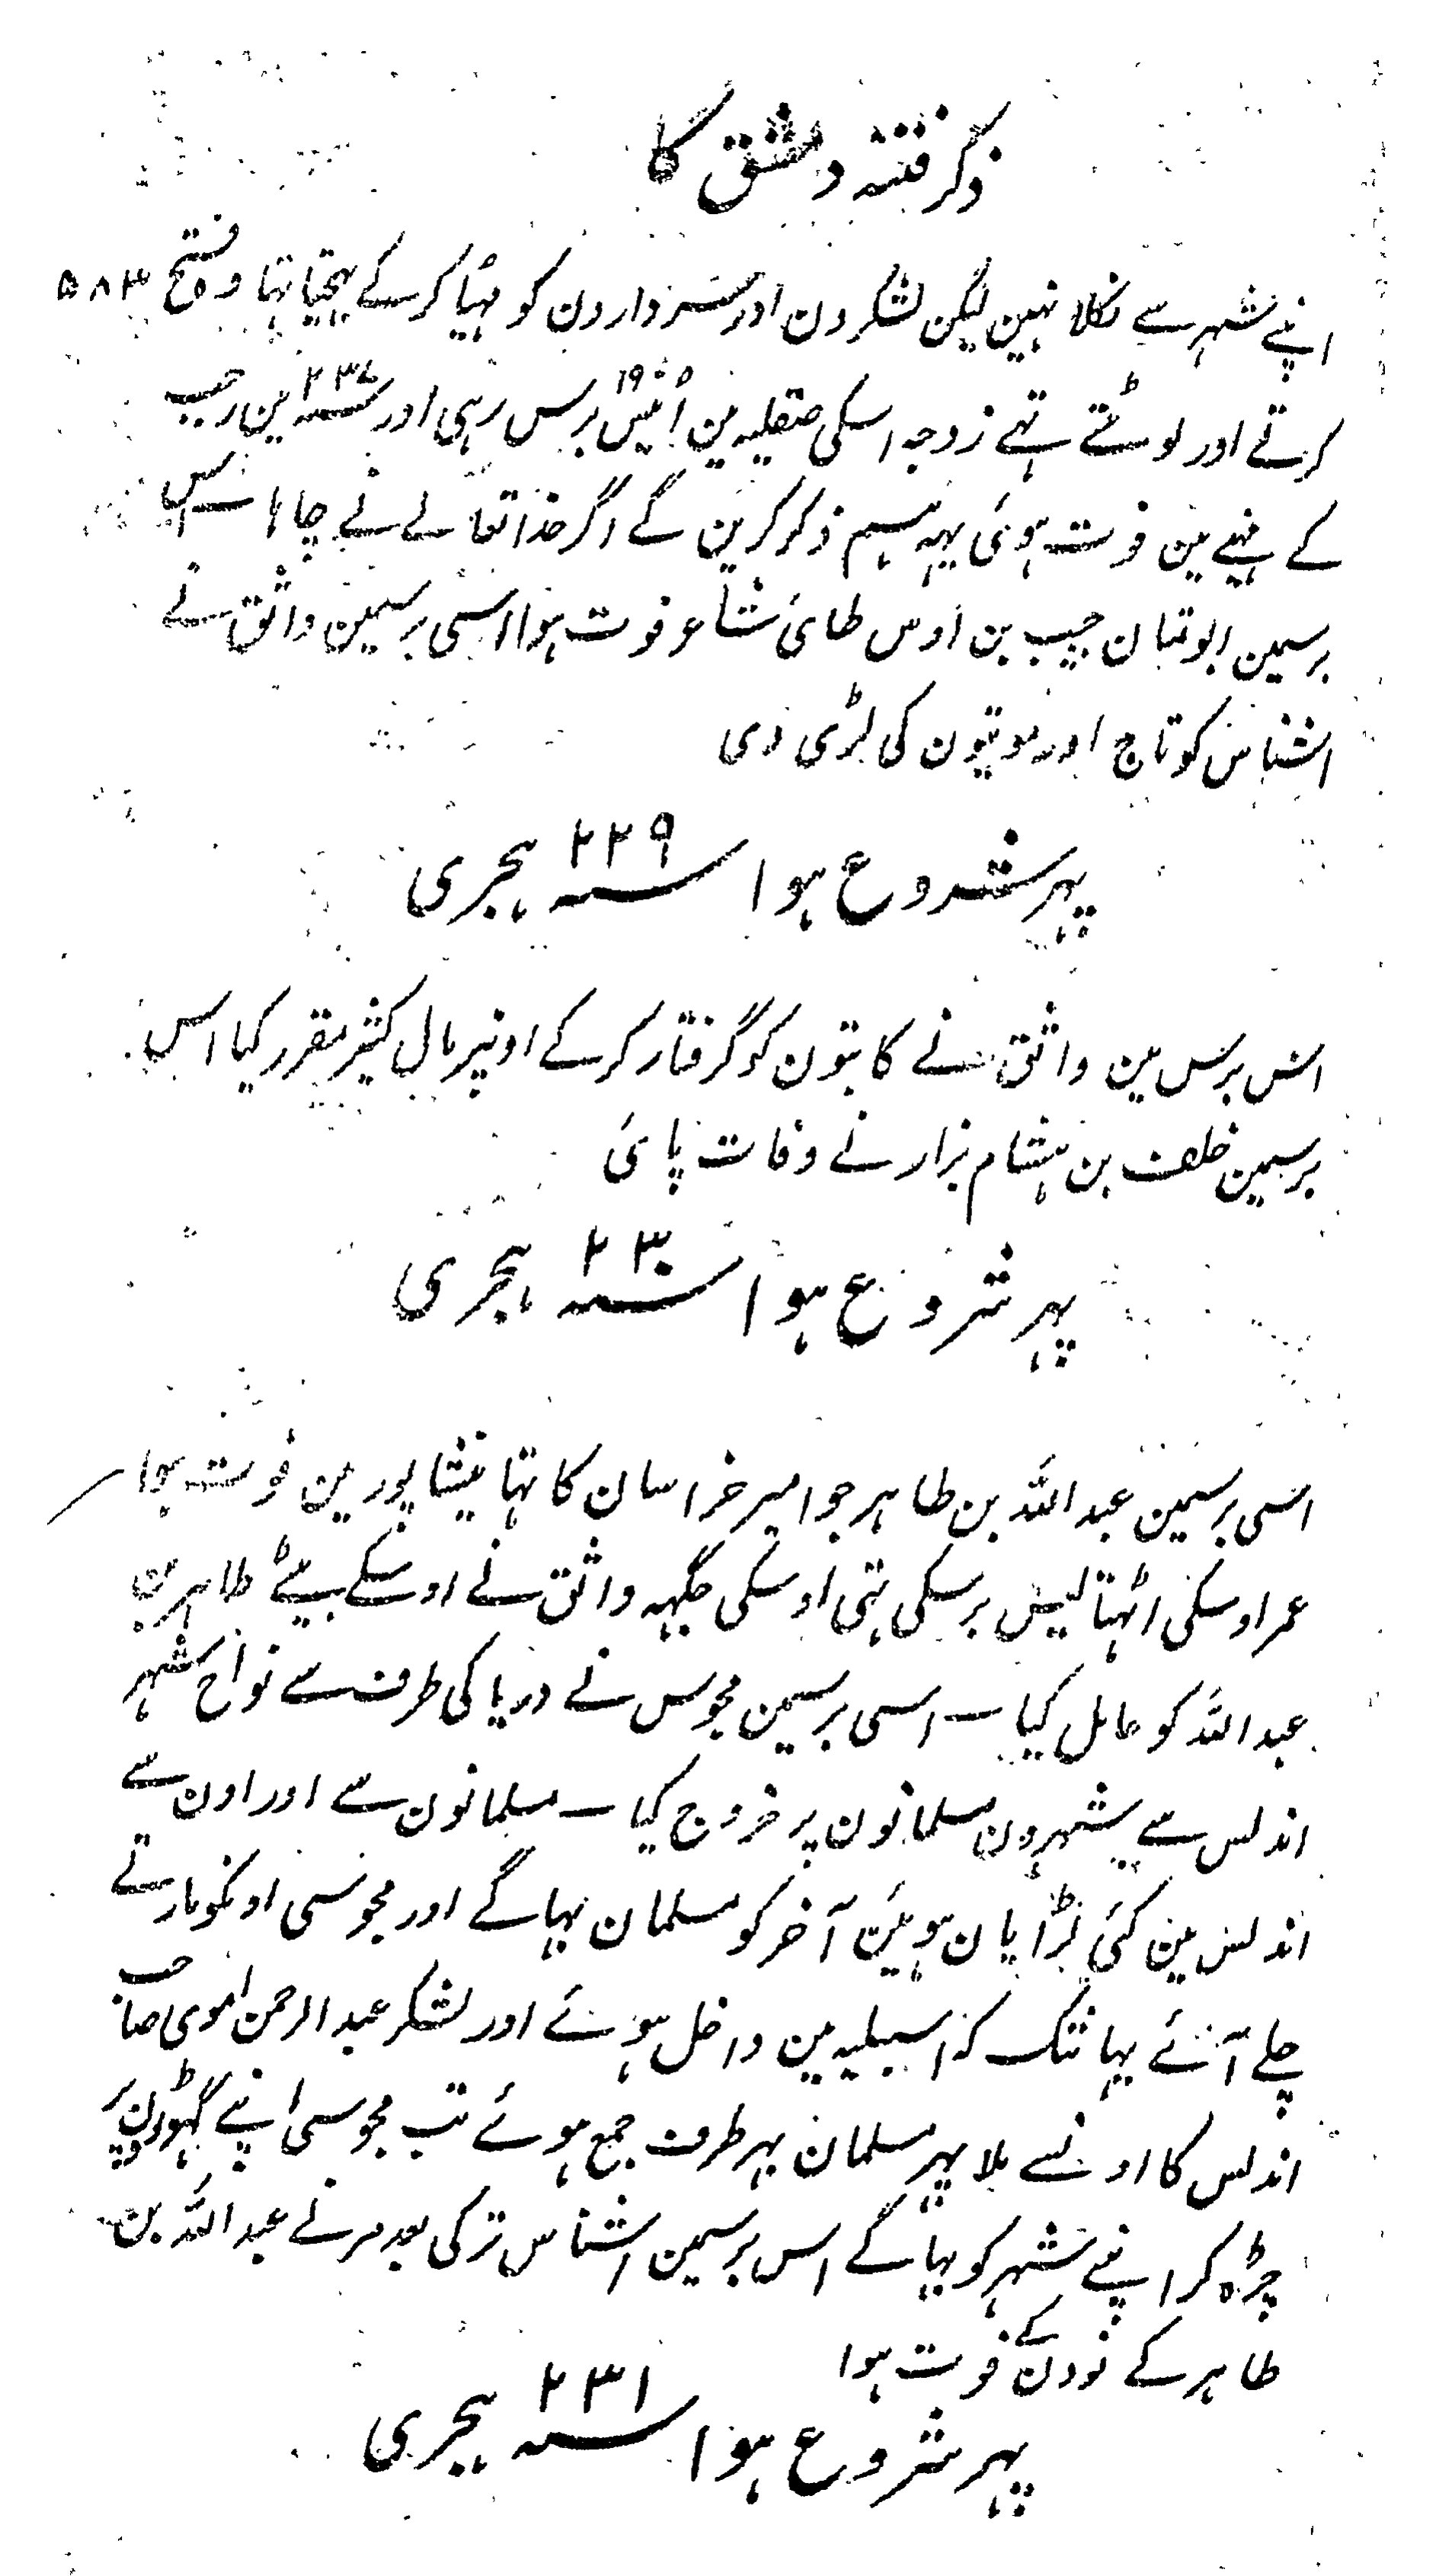 ذکر فتنہ دمشق کا
۵۸۳
اپنے شہر سے نکلا نہین لیکن لشکرون اور سردارون کو مہیا کرکے بھیجتا تہا وہ فتح
کرتے اور لوٹتے تہے زوجہ اسکی صقلیہ مین اُنیس ۱۹ برس رہی اور سنہ ۲۳۷ مین رجب
کے مہینے مین فوت ہوئی یہہ ہم ذکر کرین گے اگر خدا تعالے نے چاہا – اس
برسمین ابوتمام حبیب بن اوس طائی شاعر فوت ہوا اسی برسمین واثق نے
اشناس کو تاج اور موتیون کی لڑی دی
پہر شروع ہوا سنہ ۲۲۹ ہجری
اس برس مین واثق نے کاتبون کو گرفتار کرکے اونپر مال کثیر مقرر کیا اس
برسمین خلف بن ہشام بزار نے وفات پائی
پہر شروع ہوا سنہ ۲۳۰ ہجری
اسی برسمین عبد اللہ بن طاہر جو امیر خراسان کا تہا نیشاپور مین فوت ہوا –
عمر اوسکی اٹہتالیس برسکی تہی اوسکی جگہہ واثق نے اوسکے بیٹے طاہر بن
عبد اللہ کو عامل کیا – اسی برسمین مجوس نے دریا کی طرف سے نواح شہر
اندلس سے شہرون مسلمانون پر خروج کیا – مسلمانون سے اور اون سے
اندلس مین کئی لڑایان ہوئین آخر کو مسلمان بہاگے اور مجوسی اونکو مارتے
چلے آئے یہانتک کہ اسبیلیہ مین داخل ہوئے اور لشکر عبد الرحمن اموی صاحب
اندلس کا اونسے ملا پہر مسلمان ہر طرف جمع ہوئے تب مجوسی اپنے گہوڑون پر
چڑہ کر اپنے شہر کو بہاگے اس برسمین اشناس ترکی بعد مرنے عبد اللہ بن
طاہر کے نو دن کے فوت ہوا
پہر شروع ہوا سنہ ۲۳۱ ہجری